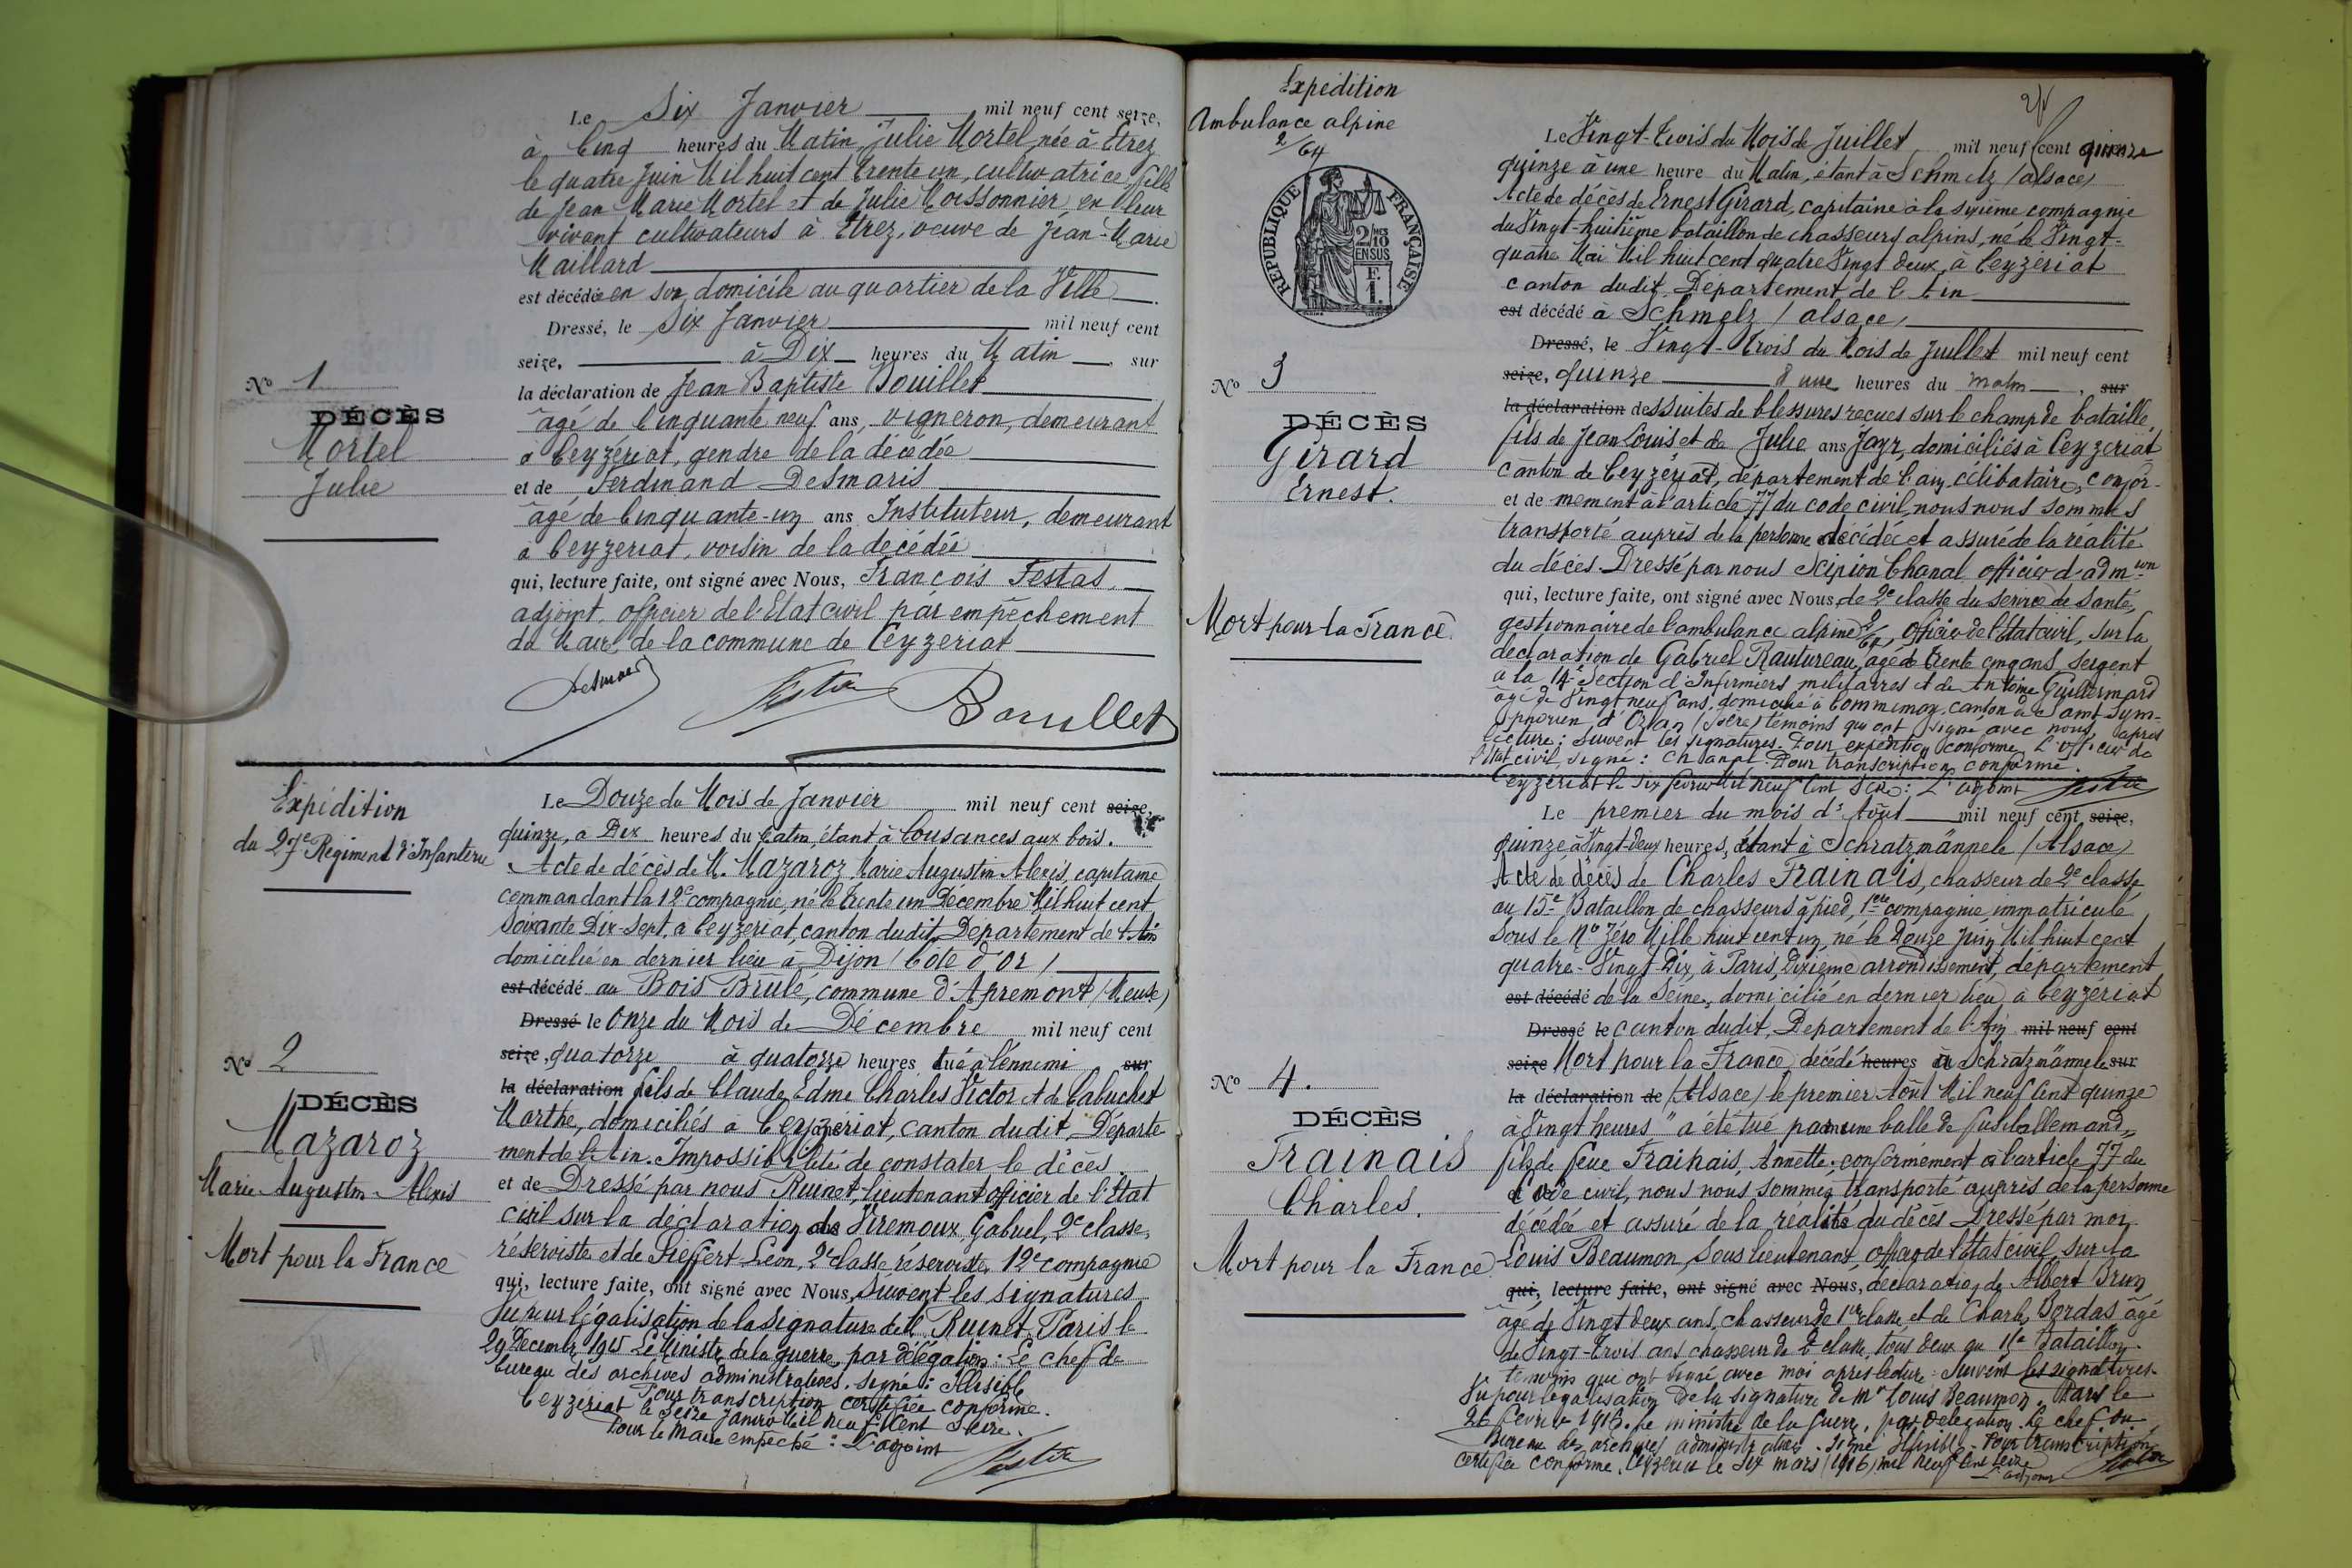 Le Six Janvier mil neuf cent seize,
à Cinq heures du Matin, Julie Mortel, née à Etrez
le quatre Juin Mil huit cent trente un, cultivatrice, fille
de Jean-Marie Mortel et de Julie Moissonnier, en leur
vivant cultivateurs à Etrez, veuve de Jean-Marie
Maillard
est décédée en son domicile au quartier de la Ville
Dressé, le Six Janvier mil neuf cent
seize, à Dix heures du Matin, sur
la déclaration de Jean Baptiste Bouillet
âgé de Cinquante neuf ans, vigneron, demeurant
à Ceyzériat, gendre de la décédée
et de Ferdinand Desmaris
âgé de Cinquante-un ans Instituteur, demeurant
à Ceyzeriat, voisin de la décédée
qui, lecture faite, ont signé avec Nous, François Festas,
adjoint, officier de l'Etat civil par empêchement
du Maire de la commune de Ceyzeriat
Bouillet
No 1
DÉCÈS
Mortel
Julie
Expédition
du 27e Régiment d'Infanterie
No 2
DÉCÈS
Mazaroz
Marie-Augustin-Alexis
Mort pour la France
Le Douze du Mois de Janvier mil neuf cent seize,
quinze, à Dix heures du Matin, étant à Cousances aux bois.
Acte de décès de M. Mazaroz Marie Augustin Alexis, capitaine
commandant la 12e compagnie, né le trente un Décembre Mil huit cent
Soixante Dix-Sept, à Ceyzeriat, canton dudit, Département de l'Ain
domicilié en dernier lieu à Dijon (Côte d'Or)
est décédé au Bois Brûlé, commune d'Apremont (Meuse)
Dressé le Onze du Mois de Décembre mil neuf cent
seize, quatorze à quatorze heures tué à l'ennemi sur
la déclaration fils de Claude Edme Charles Victor et de Cabuchet
Marthe, domiciliés à Ceyzériat, canton dudit Départe
ment de l'Ain. Impossibilité de constater le décès.
et de Dressé par nous Ruinet, lieutenant officier de l'Etat
civil sur la déclaration de Viremoux, Gabriel, 2e classe,
réserviste et de Sieffert Léon, 2e classe réserviste, 12e compagnie
qui, lecture faite, ont signé avec Nous, Suivent les signatures
Vu pour légalisation de la signature de M. Ruinet. Paris le
29 Décembre 1915 Le Ministre de la guerre, par délégation: Le chef de
bureau des archives administratives. Signé: Illisible
Pour transcription certifiée conforme.
Ceyzériat le Seize Janvier Mil neuf Cent Seize.
Pour le Maire empêché: L'adjoint
Expédition
Ambulance alpine
2/64
REPUBLIQUE FRANÇAISE
2/10
EN SUS
F.
1.
No 3
DÉCÈS
Girard
Ernest.
Mort pour la France
Le Vingt-trois du Mois de Juillet mil neuf cent quinze
quinze à une heure du Matin, étant à Schmelz (Alsace)
Acte de décès de Ernest Girard, capitaine à la sixième compagnie
du Vingt-huitième bataillon de chasseurs alpins, né le Vingt-
quatre Mai Mil huit cent quatre Vingt deux, à Ceyzériat
canton dudit, Département de l'Ain
est décédé à Schmelz (alsace)
Dressé, le Vingt-trois du Mois de Juillet mil neuf cent
seize, quinze à une heures du matin, sur
la déclaration des suites de blessures reçues sur le champ de bataille,
fils de Jean Louis et de Julie ans Jayr, domiciliés à Ceyzeriat
canton de Ceyzériat, département de l'ain, célibataire, confor-
et de mement à l'article 77 du code civil, nous nous sommes
transporté auprès de la personne décédée et assuré de la réalité
du décès. Dressé par nous Scipion Chanal officier d'admon
qui, lecture faite, ont signé avec Nous, de 2e classe du service de Santé,
gestionnaire de l'ambulance alpine 2/64, officier de l'Etat civil, sur la
déclaration de Gabriel Rautureau, âgé de trente cinq ans, Sergent
à la 14e Section d'Infirmiers militaires et de Antoine Guillermard
âgé de Vingt neuf ans, domicilié à Commimay, canton de Saint Sym-
phorien d'Ozan (Isère) témoins qui ont signé avec nous après
lecture: Suivent les signatures. Pour expédition conforme, L'officier de
l'Etat civil, signé: Chanal. Pour transcription conforme.
Ceyzériat le Six février Mil neuf Cent Seize: L'adjoint
No 4.
DÉCÈS
Frainais
Charles.
Mort pour la France
Le premier du mois d'Août mil neuf cent seize,
quinze à Vingt-deux heures, étant à Schratzmännele (Alsace)
Acte de décès de Charles Frainais, chasseur de 2e classe
au 15e Bataillon de chasseurs à pied, 1ère compagnie, immatriculé
Sous le No Zéro Mille huit cent un, né le Douze Juin Mil huit cent
quatre-Vingt Dix, à Paris, Dixième arrondissement, département
est décédé de la Seine, domicilié en dernier lieu à Ceyzériat
Dressé le canton dudit, Département de l'Ain mil neuf cent
seize Mort pour la France, décédé heures à Schratzmännele sur
la déclaration de (Alsace) le premier Août Mil neuf Cent quinze
à Vingt heures "a été tué par une balle de fusil allemand,,
fils de feue Frainais, Annette; conformément à l'article 77 du
Code civil, nous nous sommes transporté auprès de la personne
décédée et assuré de la réalité du décès. Dressé par moi
Louis Beaumon, Sous lieutenant, officier de l'Etat civil, sur la
qui, lecture faite, ont signé avec Nous, déclaration de Albert Brun
âgé de Vingt deux ans, chasseur de 1ère classe et de Charles Bordas âgé
de Vingt-Trois ans chasseur de 2e classe, tous deux au 11e Bataillon.
témoins qui ont signé avec moi après lecture. Suivent les signatures.
Vu pour légalisation de la signature de Mr Louis Beaumon. Paris le
26 février 1916. Le ministre de la Guerre, par délégation. Le chef du
bureau des archives administratives. Signé: Illisible. Pour transcription
certifiée conforme. Ceyzériat le Six mars (1916) mil neuf Cent Seize
L'adjoint